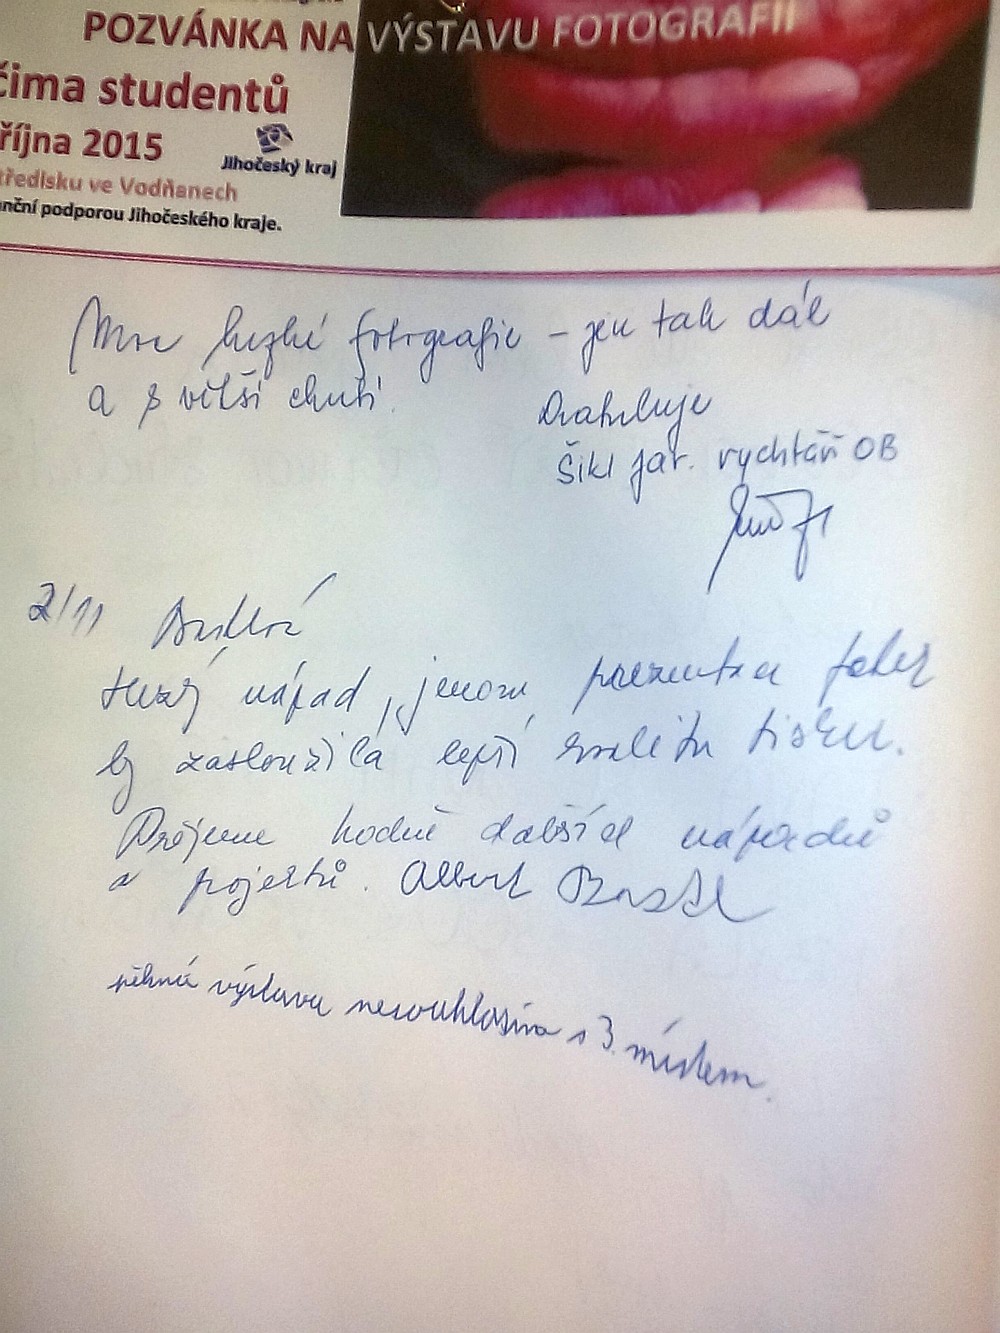 POZVÁNKA NA VÝSTAVU FOTOGRAFII
čima studentů
října 2015
Jihočeský kraj
ředisku ve Vodňanech
nční podporou Jihočeského kraje.
Moc hezké fotografie – jen tak dál
a s větší chutí.
Gratuluje
Šikl Jar. rychtář OB
2/11
Hezký nápad, jenom prezentace fotek
by zasloužila lepší kvalitu tisku.
Přejeme hodně dalších nápadů
a projektů. Albert
pěkná výstava nesouhlasíme s 3. místem.